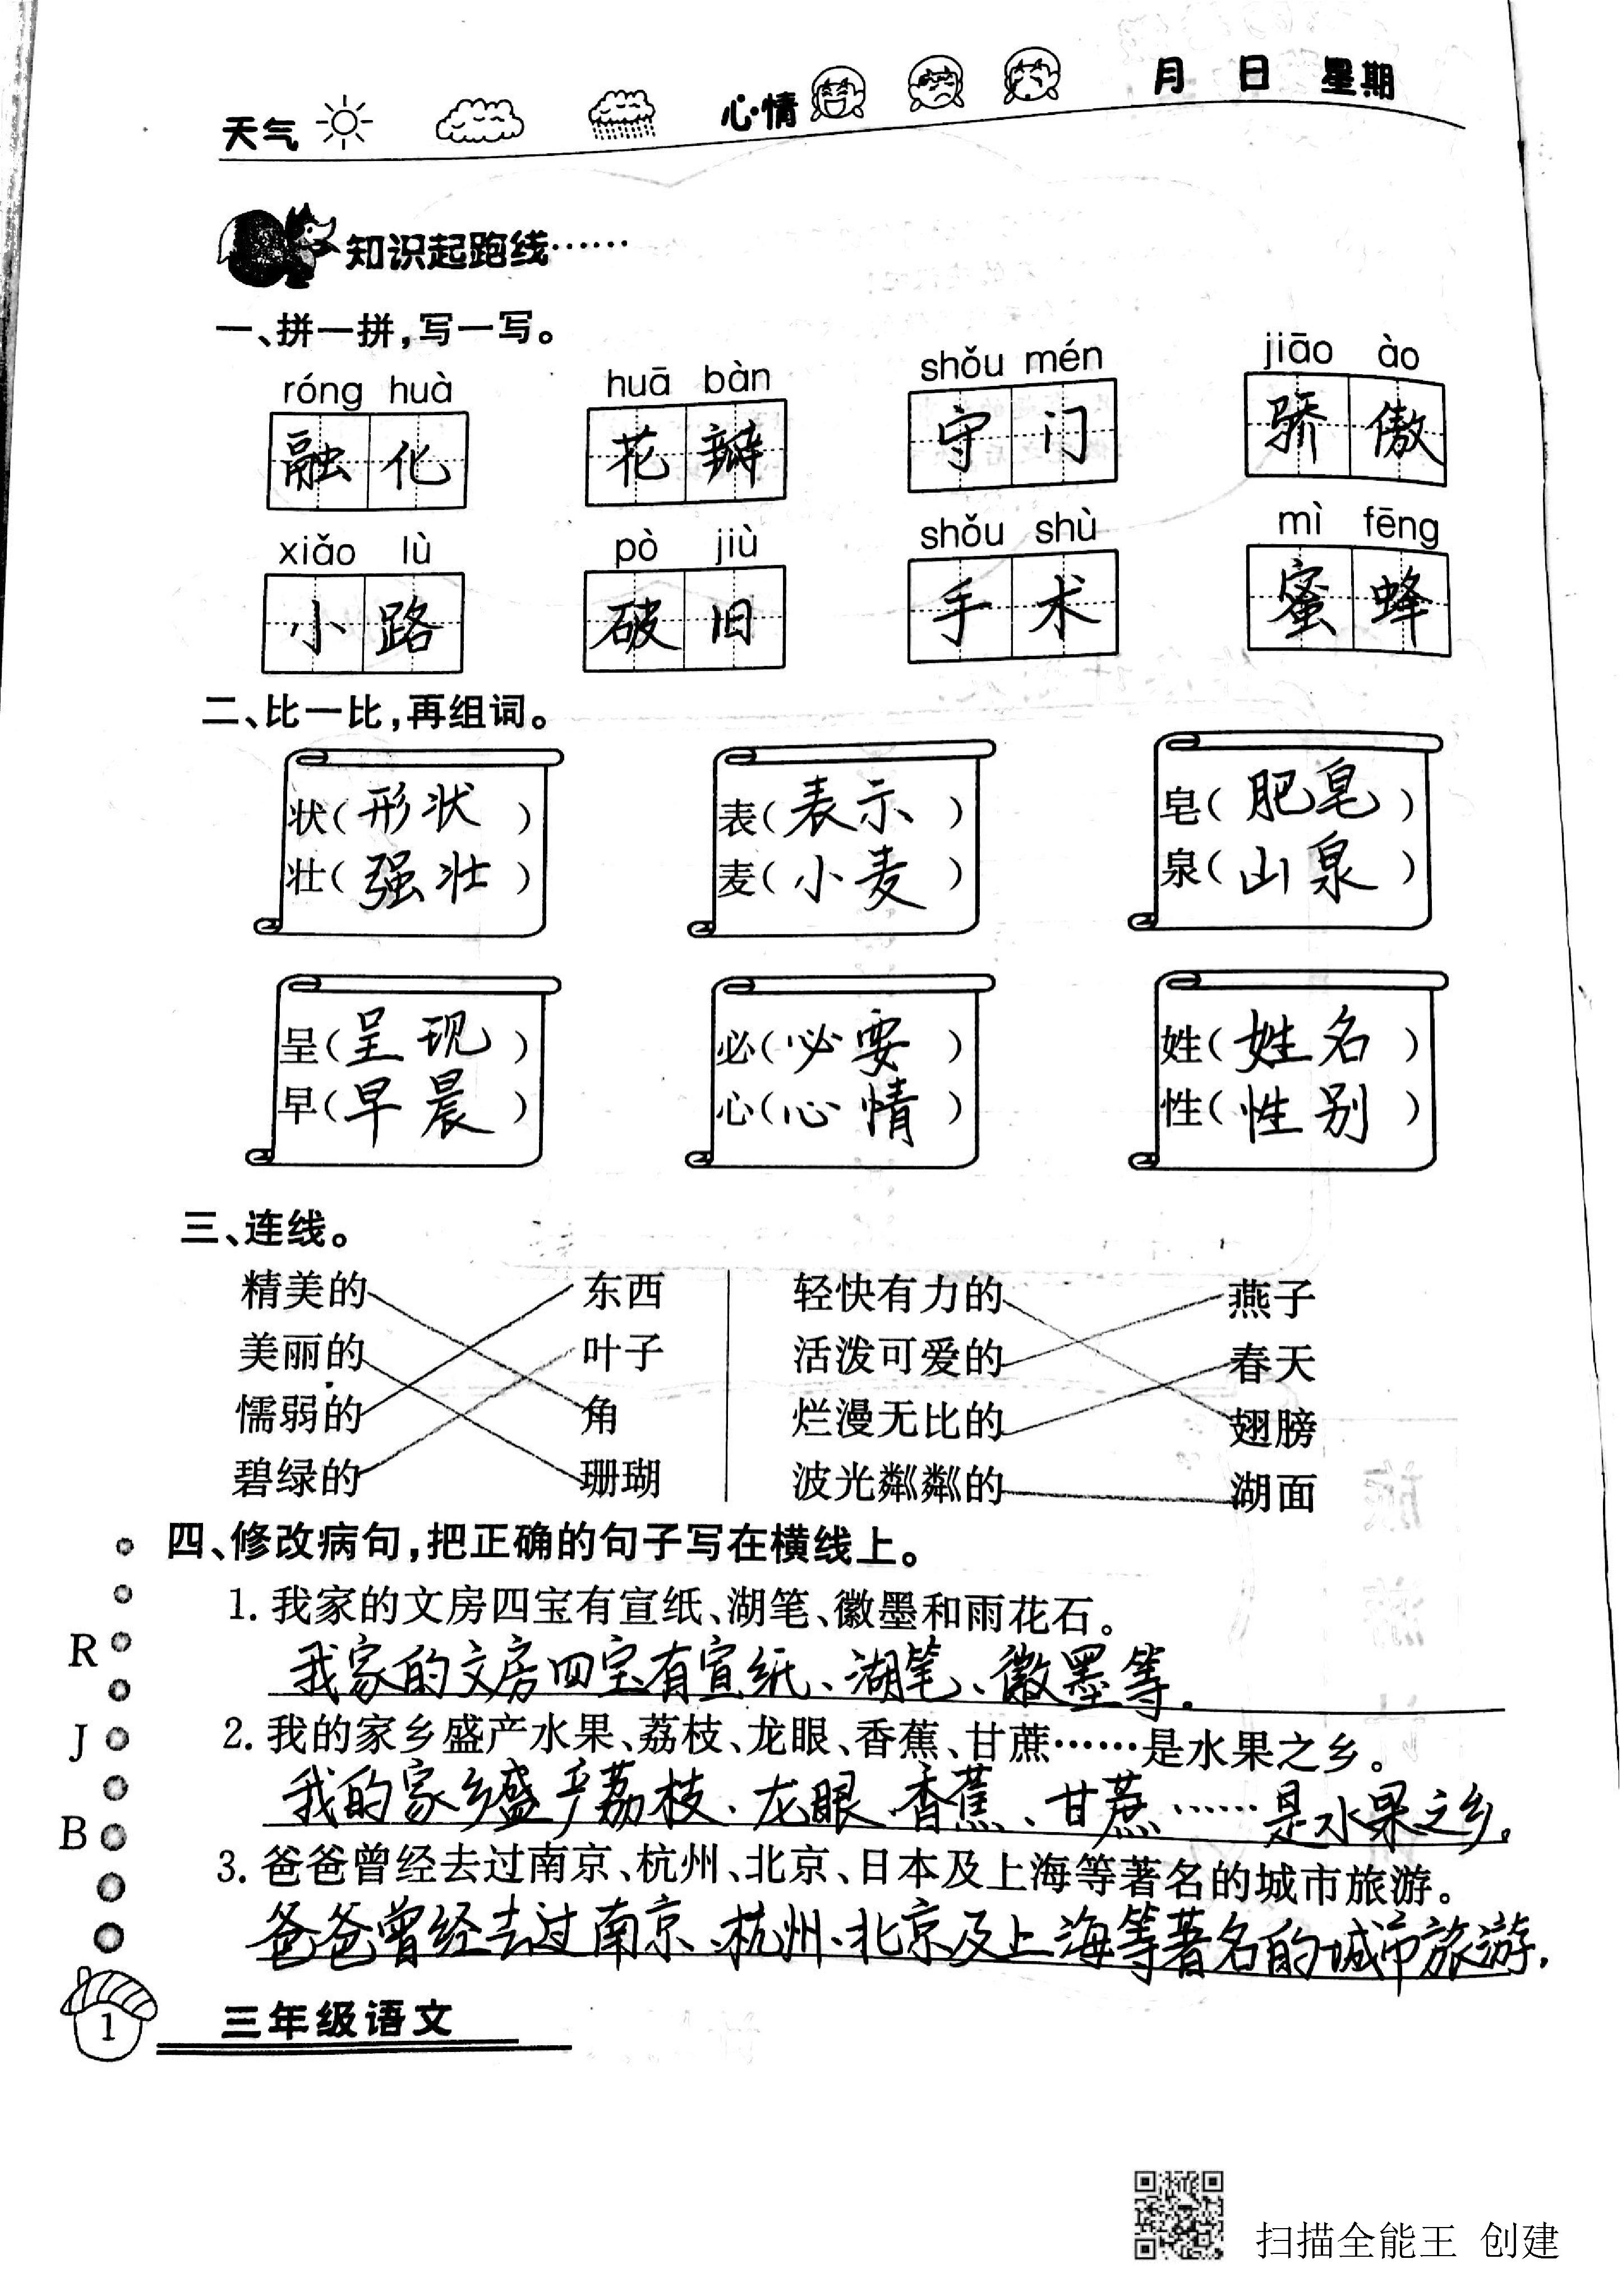 天气 心情 月 日 星期
知识起跑线……
一、拼一拼,写一写。
róng huà huā bàn shǒu mén jiāo ào
融化 花瓣 守门 骄傲
xiǎo lù pò jiù shǒu shù mì fēng
小路 破旧 手术 蜜蜂
二、比一比,再组词。
状(形状) 表(表示) 皂(肥皂)
壮(强壮) 麦(小麦) 泉(山泉)
呈(呈现) 必(必要) 姓(姓名)
早(早晨) 心(心情) 性(性别)
三、连线。
精美的 东西 轻快有力的 燕子
美丽的 叶子 活泼可爱的 春天
懦弱的 角 烂漫无比的 翅膀
碧绿的 珊瑚 波光粼粼的 湖面
四、修改病句,把正确的句子写在横线上。
1. 我家的文房四宝有宣纸、湖笔、徽墨和雨花石。
我家的文房四宝有宣纸、湖笔、徽墨等.
2. 我的家乡盛产水果、荔枝、龙眼、香蕉、甘蔗……是水果之乡。
我的家乡盛产荔枝、龙眼、香蕉、甘蔗……是水果之乡。
3. 爸爸曾经去过南京、杭州、北京、日本及上海等著名的城市旅游。
爸爸曾经去过南京、杭州、北京及上海等著名的城市旅游.
R
J
B
1 三年级语文
扫描全能王 创建